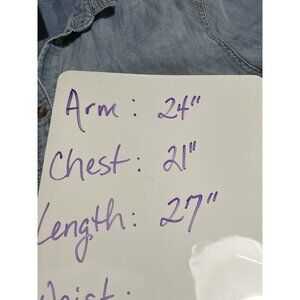 Arm: 24"
Chest: 21"
Length: 27"